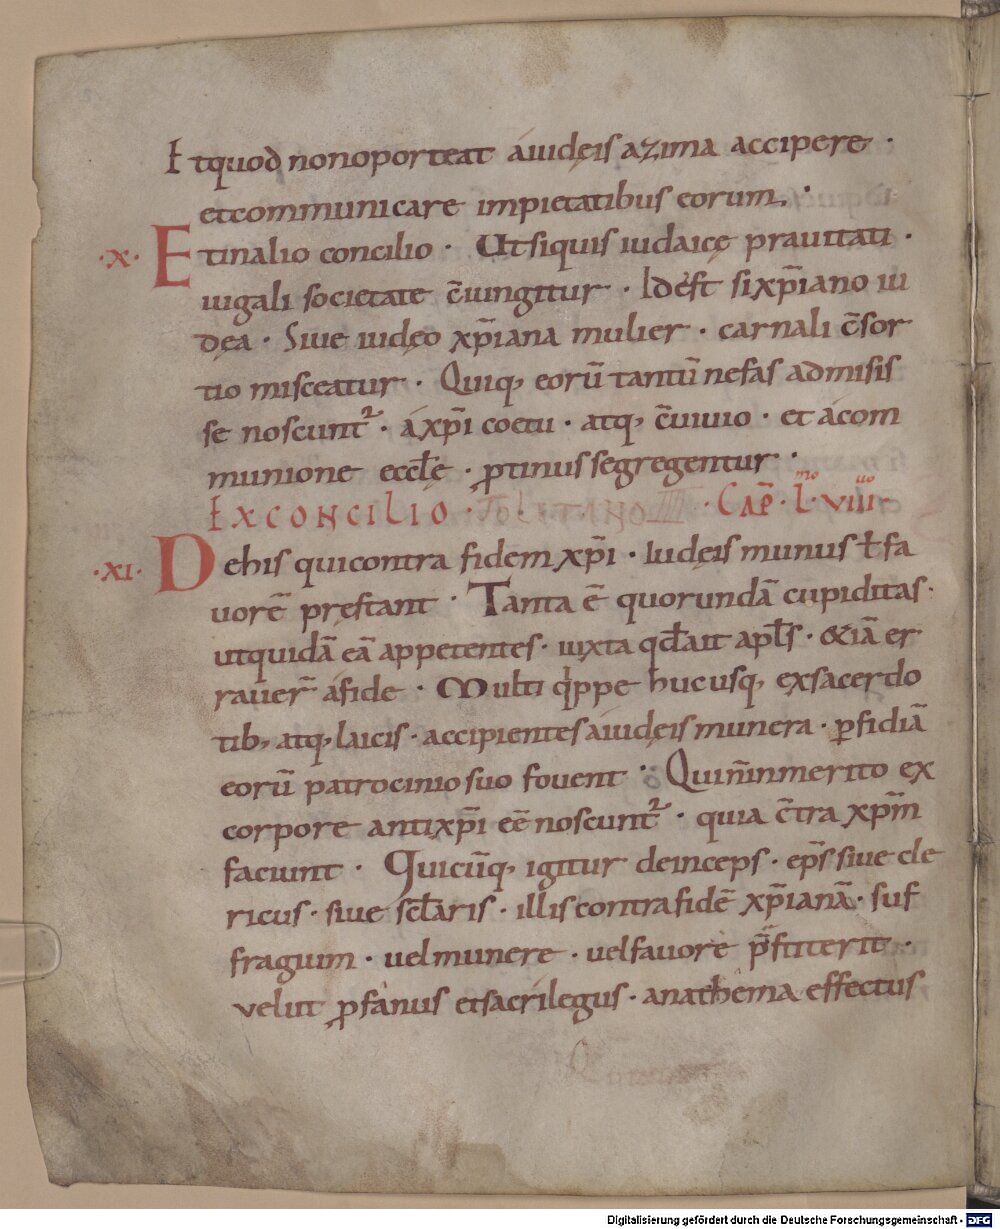 Et quod non oporteat a iudęis azima accipere ·
et communicare impietatibus eorum. ·
·X· Et in alio concilio · Ut si quis iudaicę prauitati ·
iugali societate c̄iungitur · Id ést si xp̄iano iu
dęa · Siue iudęo xp̄iana mulier · carnali c̄sor
tio misceatur · Quiq, eorū tantū nefas admisis
se noscunt᷑ · á xp̄i coetu · atq, c̄uiuio · et á com
munione eccl̄ę · ꝓtinus segregentur ·
EX CONCILIO · TOLETANO IIII · CAP̄ · L·VIIII·
·XI· De his qui contra fidem xp̄i · Iudęis munus ł fa
uorē prestant · Tanta ē quorundā cupiditas ·
ut quidā eā appetentes · iuxta qđ ait apl̄s · &iā er
rauer̄ á fide · Multi qippe hucusq, ex sacerdo
tib, atq, laicis · accipientes a iudęis munera · ꝑfidiā
eorū patrocinio suo fouent · Qui n̄ inmerito ex
corpore antixp̄i eē noscunt᷑ · quia c̄tra xp̄m
faciunt · Quicūq, igitur deinceps · ep̄s siue cle
ricus · siue scl̄aris · illis contra fidē xp̄ianā · suf
fragium · uel munere · uel fauore p̄stiterit ·
velut ꝓfanus et sacrilegus · anathema effectus
Digitalisierung gefördert durch die Deutsche Forschungsgemeinschaft - DFG